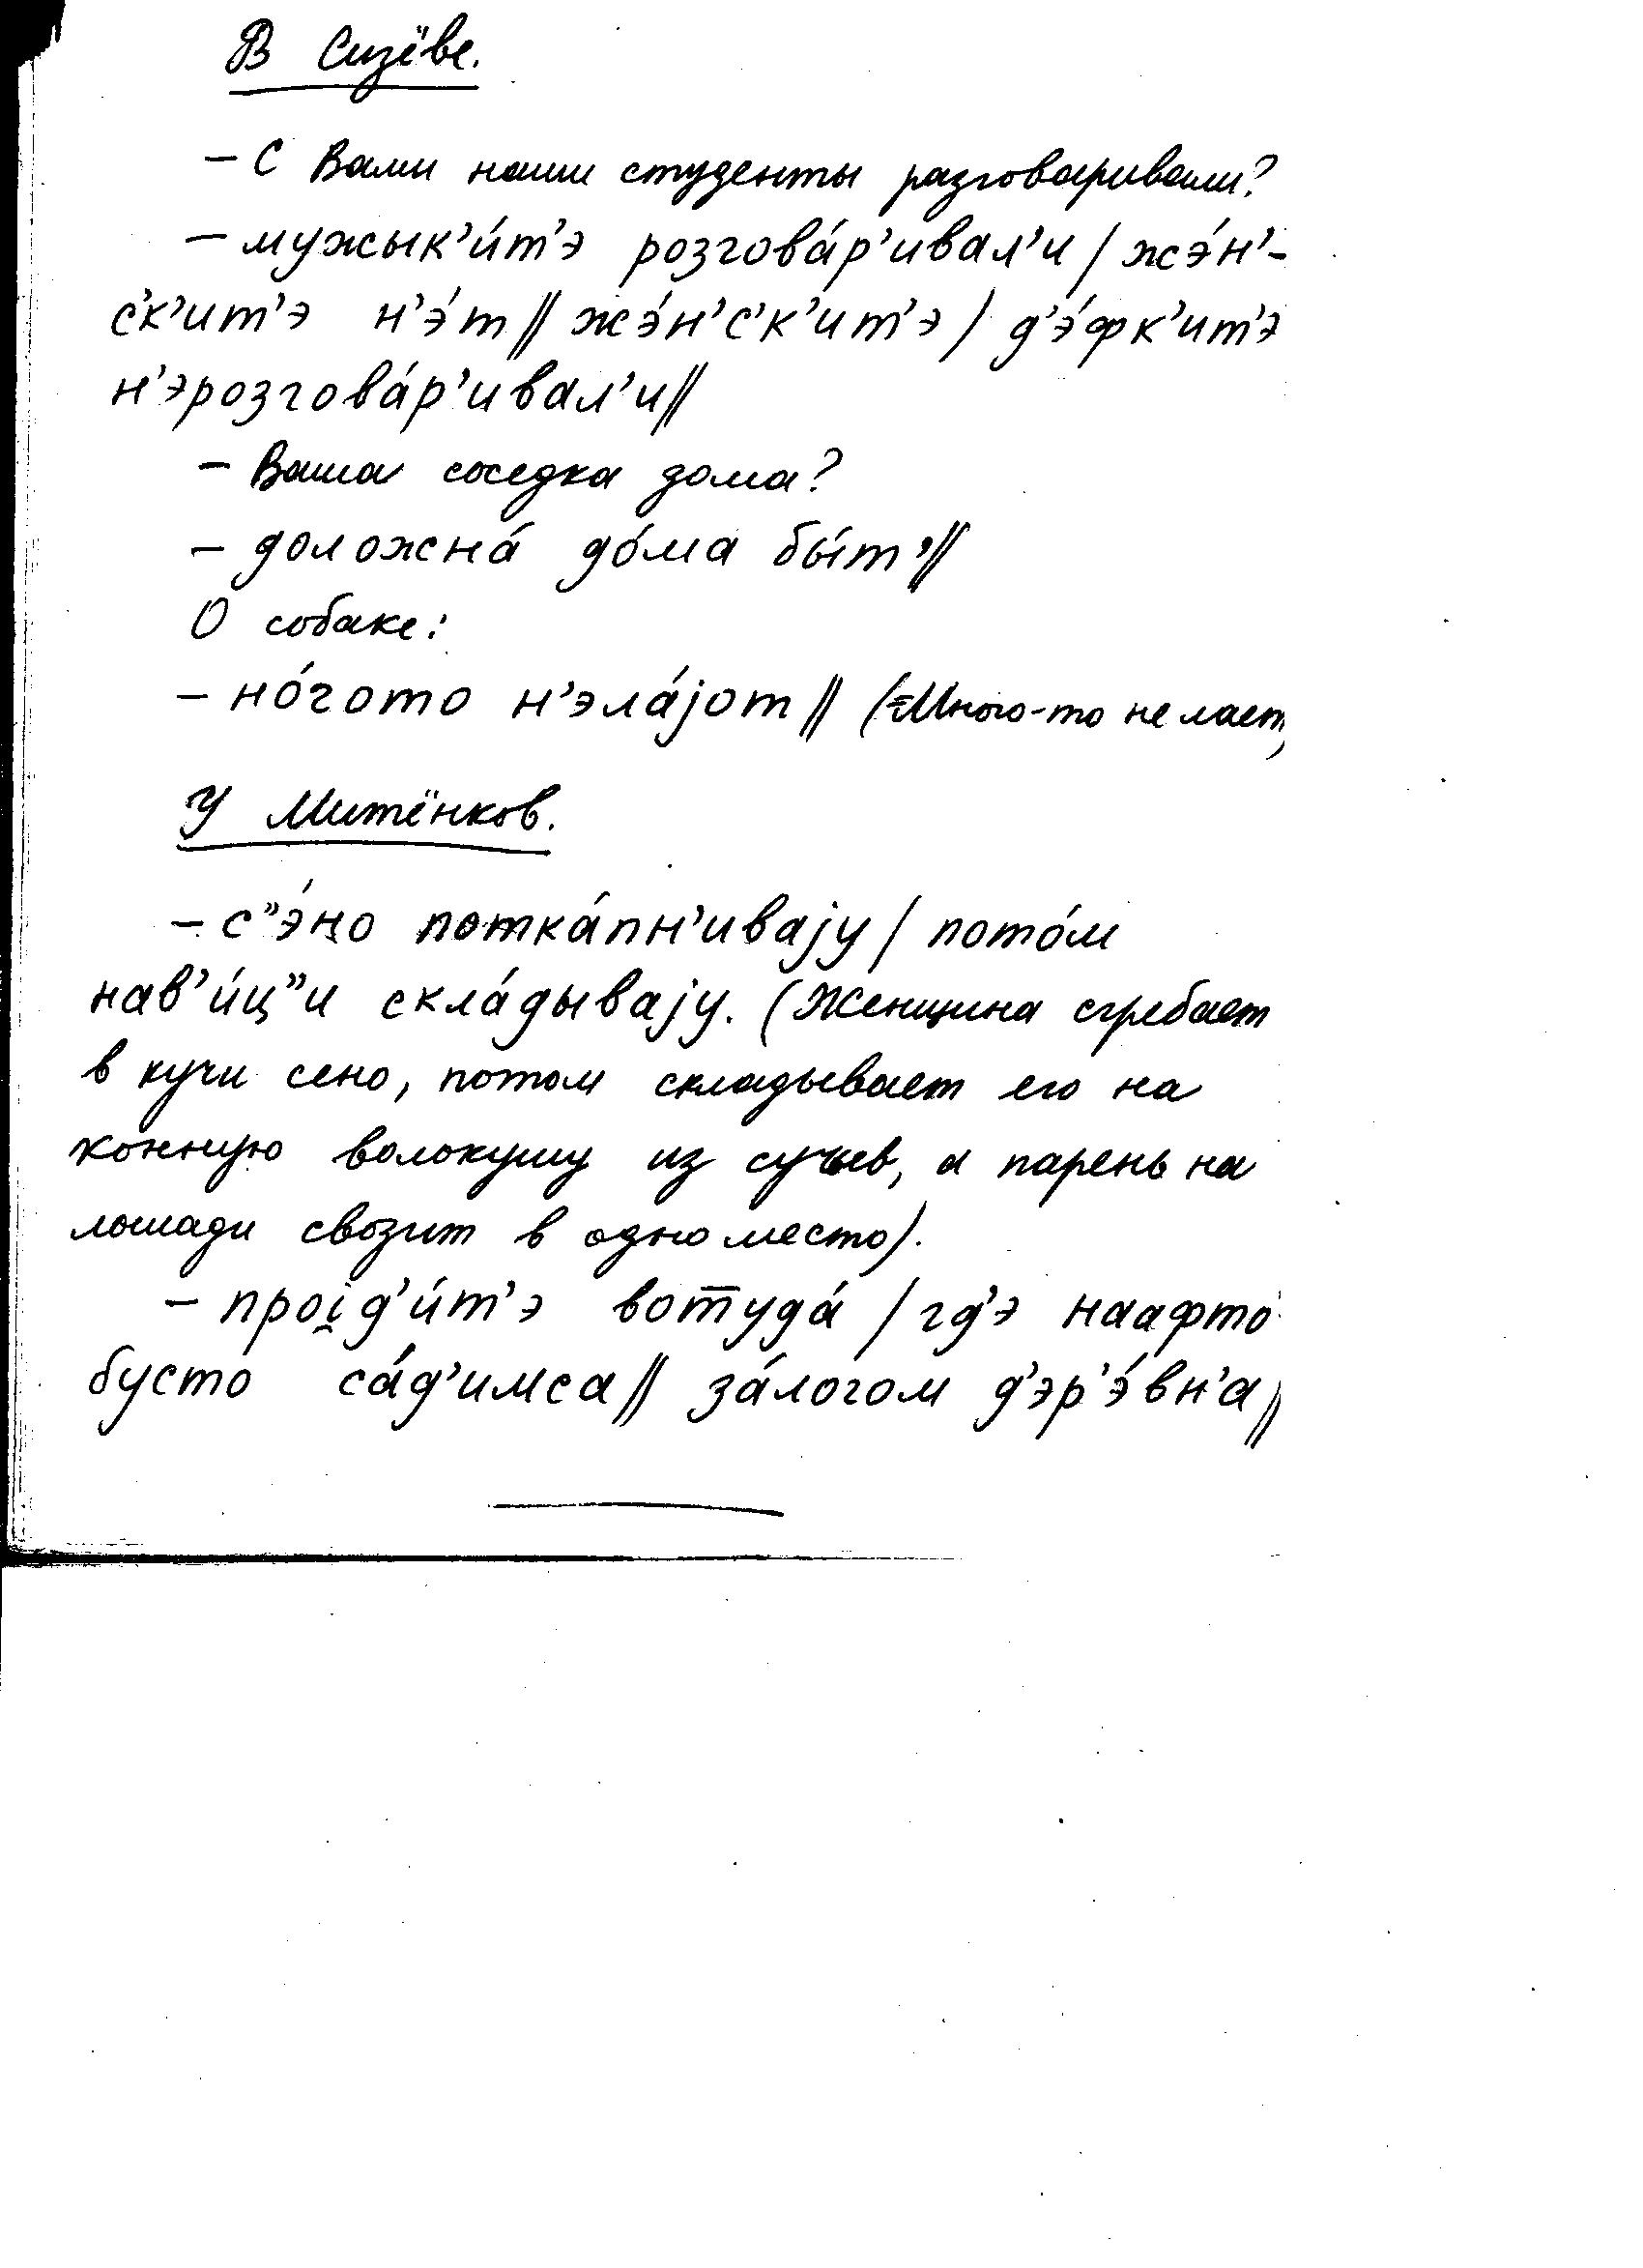 В Сизёве.
– С Вами наши студенты разговаривали?
– мужык’и́т’э розгова́р’ивал’и / жэ́н’-
с’к’ит’э н’э́т // жэ́н’с’к’ит’э / д’э́фк’ит’э
н’эрозгова́р’ивал’и //
– Ваша соседка дома?
– доложна́ до́ма бы́т’ //
О собаке:
– но́гото н’эла́jот // (=Много-то не лает)
У Митёнков.
– с”э́но потка́пн’иваjу / пото́м
нав’и́ц”и скла́дываjу. (Женщина сгребает
в кучи сено, потом складывает его на
конную волокушу из сучьев, а парень на
лошади свозит в одно место).
– проi̯д’и́т’э вот̅уда́ / гд’э наафто́
бусто са́д’имса // за́логом д’эр’э́вн’а //